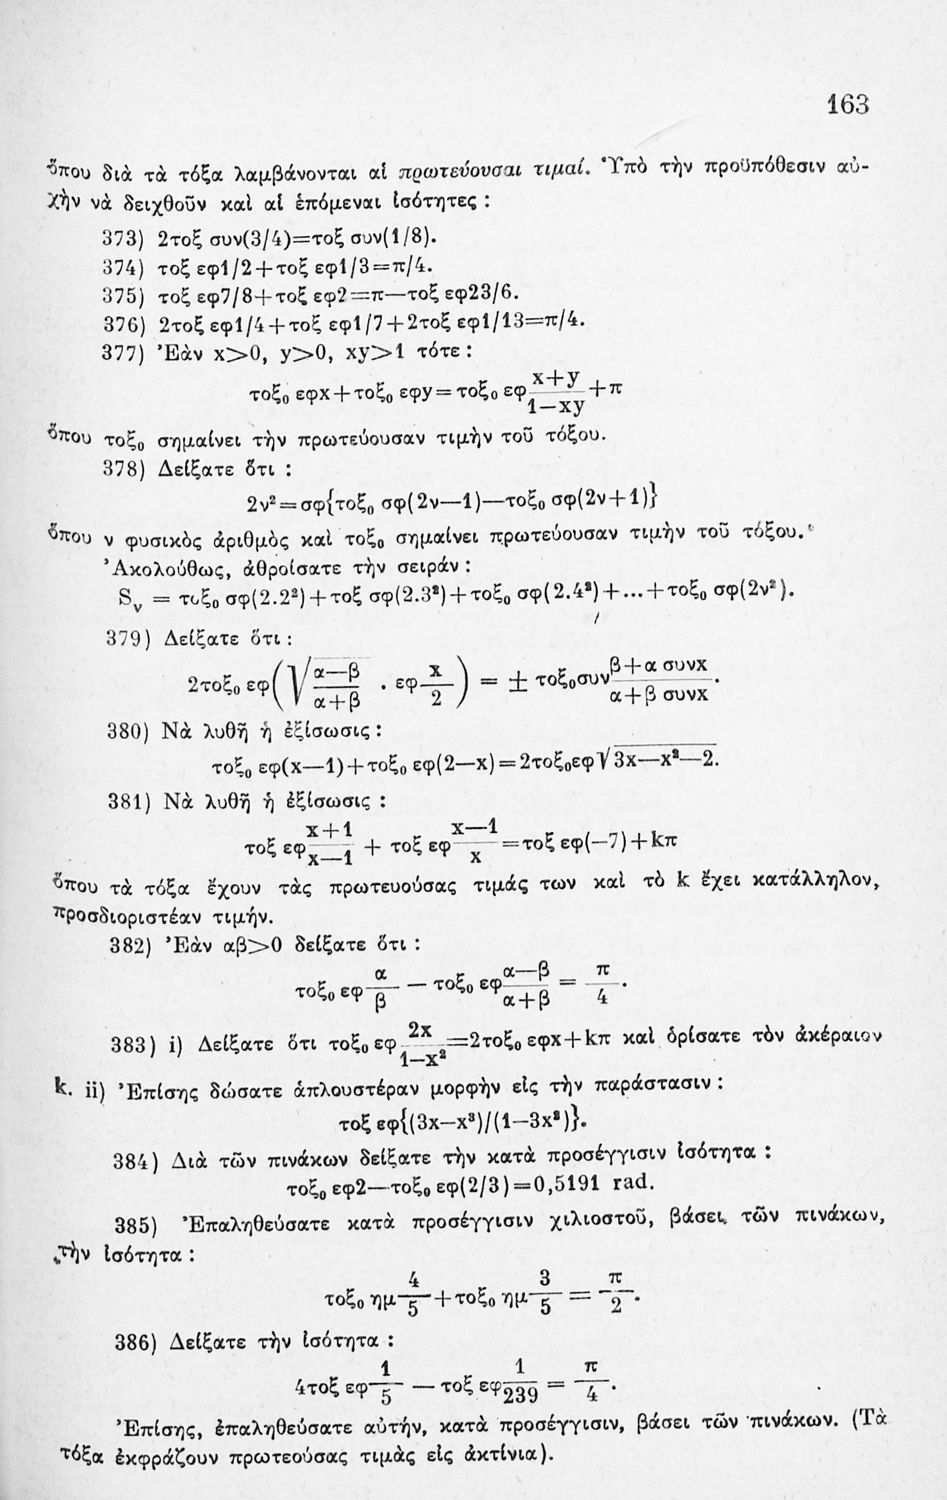 163
ὅπου διὰ τὰ τόξα λαμβάνονται αἱ πρωτεύουσαι τιμαί. Ὑπὸ τὴν προϋπόθεσιν αὐ-
χὴν νὰ δειχθοῦν καὶ αἱ ἑπόμεναι ἰσότητες :
373) 2τοξ συν(3/4)=τοξ συν(1/8).
374) τοξ εφ1/2+τοξ εφ1/3=π/4.
375) τοξ εφ7/8+τοξ εφ2=π—τοξ εφ23/6.
376) 2τοξ εφ1/4+τοξ εφ1/7+2τοξ εφ1/13=π/4.
377) Ἐὰν x>0, y>0, xy>1 τότε :
τοξ₀ εφx+τοξ₀ εφy=τοξ₀ εφ (x+y)/(1—xy) +π
ὅπου τοξ₀ σημαίνει τὴν πρωτεύουσαν τιμὴν τοῦ τόξου.
378) Δείξατε ὅτι :
2ν²=σφ{τοξ₀ σφ(2ν—1)—τοξ₀ σφ(2ν+1)}
ὅπου ν φυσικὸς ἀριθμὸς καὶ τοξ₀ σημαίνει πρωτεύουσαν τιμὴν τοῦ τόξου.
Ἀκολούθως, ἀθροίσατε τὴν σειράν :
Sᵥ = τοξ₀ σφ(2.2²)+τοξ σφ(2.3²)+τοξ₀ σφ(2.4²)+...+τοξ₀ σφ(2ν²).
379) Δείξατε ὅτι :
2τοξ₀ εφ(√((α—β)/(α+β)) . εφ x/2) = ± τοξ₀συν (β+α συνx)/(α+β συνx).
380) Νὰ λυθῆ ἡ ἐξίσωσις :
τοξ₀ εφ(x—1)+τοξ₀ εφ(2—x)=2τοξ₀εφ√(3x—x²—2).
381) Νὰ λυθῆ ἡ ἐξίσωσις :
τοξ εφ (x+1)/(x—1) + τοξ εφ (x—1)/x =τοξ εφ(—7)+kπ
ὅπου τὰ τόξα ἔχουν τὰς πρωτευούσας τιμάς των καὶ τὸ k ἔχει κατάλληλον,
προσδιοριστέαν τιμήν.
382) Ἐὰν αβ>0 δείξατε ὅτι :
τοξ₀ εφ α/β — τοξ₀ εφ (α—β)/(α+β) = π/4.
383) i) Δείξατε ὅτι τοξ₀ εφ 2x/(1—x²) =2τοξ₀ εφx+kπ καὶ ὁρίσατε τὸν ἀκέραιον
k. ii) Ἐπίσης δώσατε ἁπλουστέραν μορφὴν εἰς τὴν παράστασιν :
τοξ εφ{(3x—x³)/(1—3x²)}.
384) Διὰ τῶν πινάκων δείξατε τὴν κατὰ προσέγγισιν ἰσότητα :
τοξ₀ εφ2—τοξ₀ εφ(2/3)=0,5191 rad.
385) Ἐπαληθεύσατε κατὰ προσέγγισιν χιλιοστοῦ, βάσει τῶν πινάκων,
τὴν ἰσότητα :
τοξ₀ ημ 4/5 +τοξ₀ ημ 3/5 = π/2.
386) Δείξατε τὴν ἰσότητα :
4τοξ εφ 1/5 — τοξ εφ 1/239 = π/4.
Ἐπίσης, ἐπαληθεύσατε αὐτήν, κατὰ προσέγγισιν, βάσει τῶν πινάκων. (Τὰ
τόξα ἐκφράζουν πρωτεούσας τιμὰς εἰς ἀκτίνια).